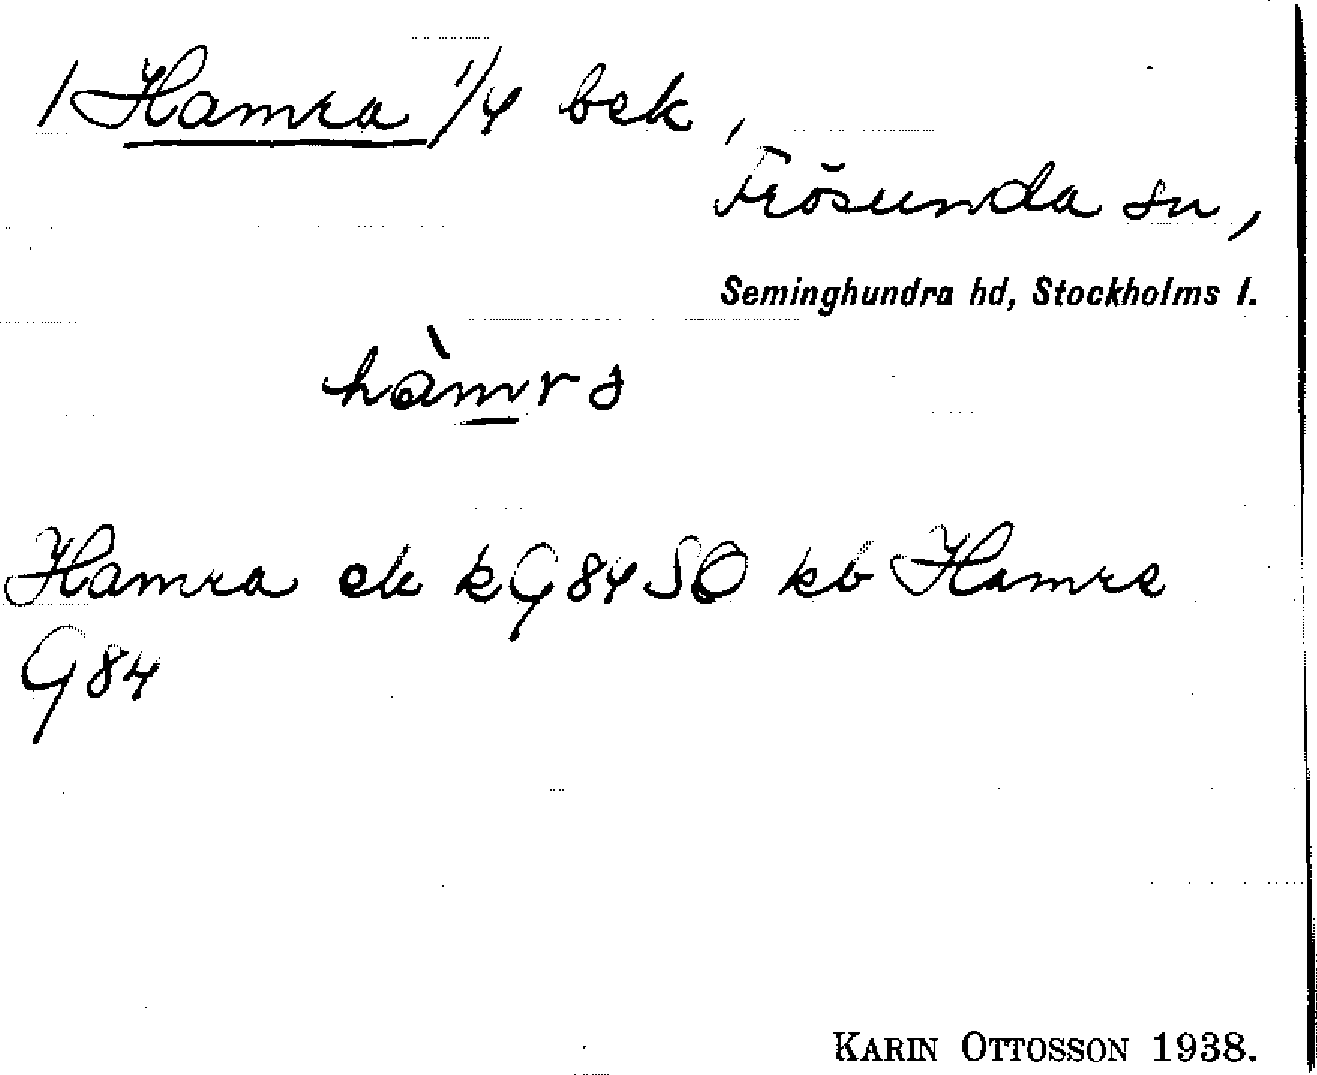 / Hamra 1/4 bek,
Frösunda sn,
Seminghundra hd, Stockholms l.
hàmrs
Hamra ek kG84SO kb Hamre
G84
KARIN OTTOSSON 1938.